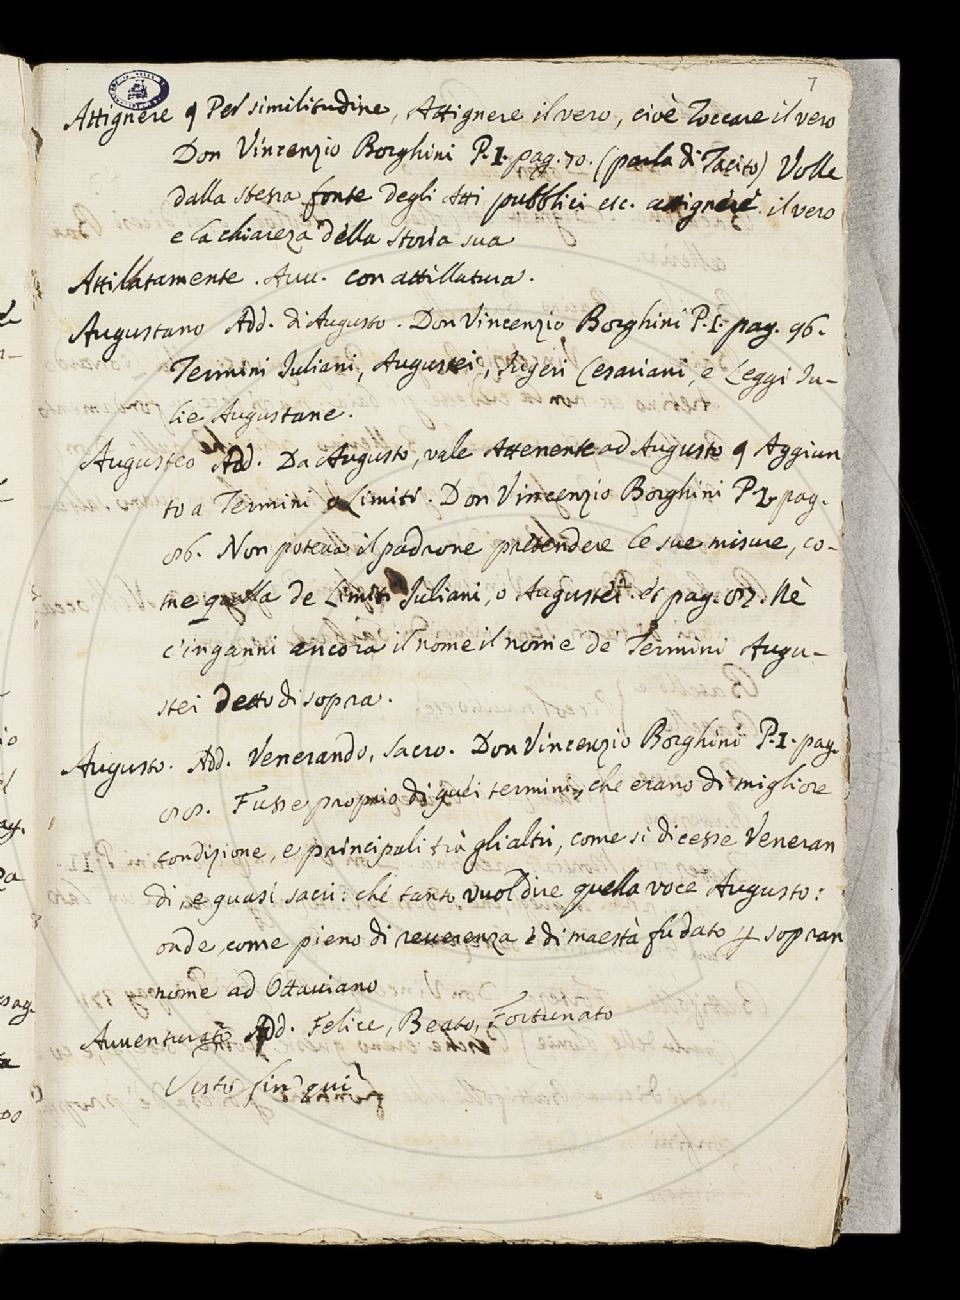 7
Attignere ¶ Per similitudine, Attignere il vero, cioè Toccare il vero
Don Vincenzio Borghini P. I. pag. 70. (parla di Tacito) Volle
dalla stessa fonte degli Atti pubblici etc. attignere il vero
e la chiareza della storia sua
Attillatamente. Avv. con attillatura.
Augustano Add. di Augusto. Don Vincenzio Borghini P. I. pag. 96.
Termini Iuliani, Augustei, Cesariani, e Leggi Iu-
lie Augustane.
Augusteo Add. Da Augusto, vale Attenente ad Augusto ¶ Aggiun
to a Termini o Limiti. Don Vincenzio Borghini P. I. pag.
86. Non poteva il padrone pretendere le sue misure, co-
me quella de Limiti Iuliani, o Augustei. et pag. 87. Nè
c'inganni ancora il nome il nome de Termini Augu-
stei detto di sopra.
Augusto. Add. Venerando, Sacro. Don Vincenzio Borghini P. I. pag.
88. Fusse proprio di quei termini, che erano di migliore
condizione, e principali trà gli altri, come si dicesse Veneran
di, e quasi sacri: chè tanto vuol dire quella voce Augusto:
onde, come pieno di reverenza e di maestà fu dato p sopran
nome ad Ottaviano
Avventurato Add. Felice, Beato, Fortunato
Visto fin qui